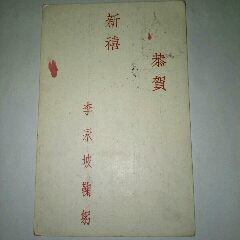 恭賀
新禧
李永坡鞠躬